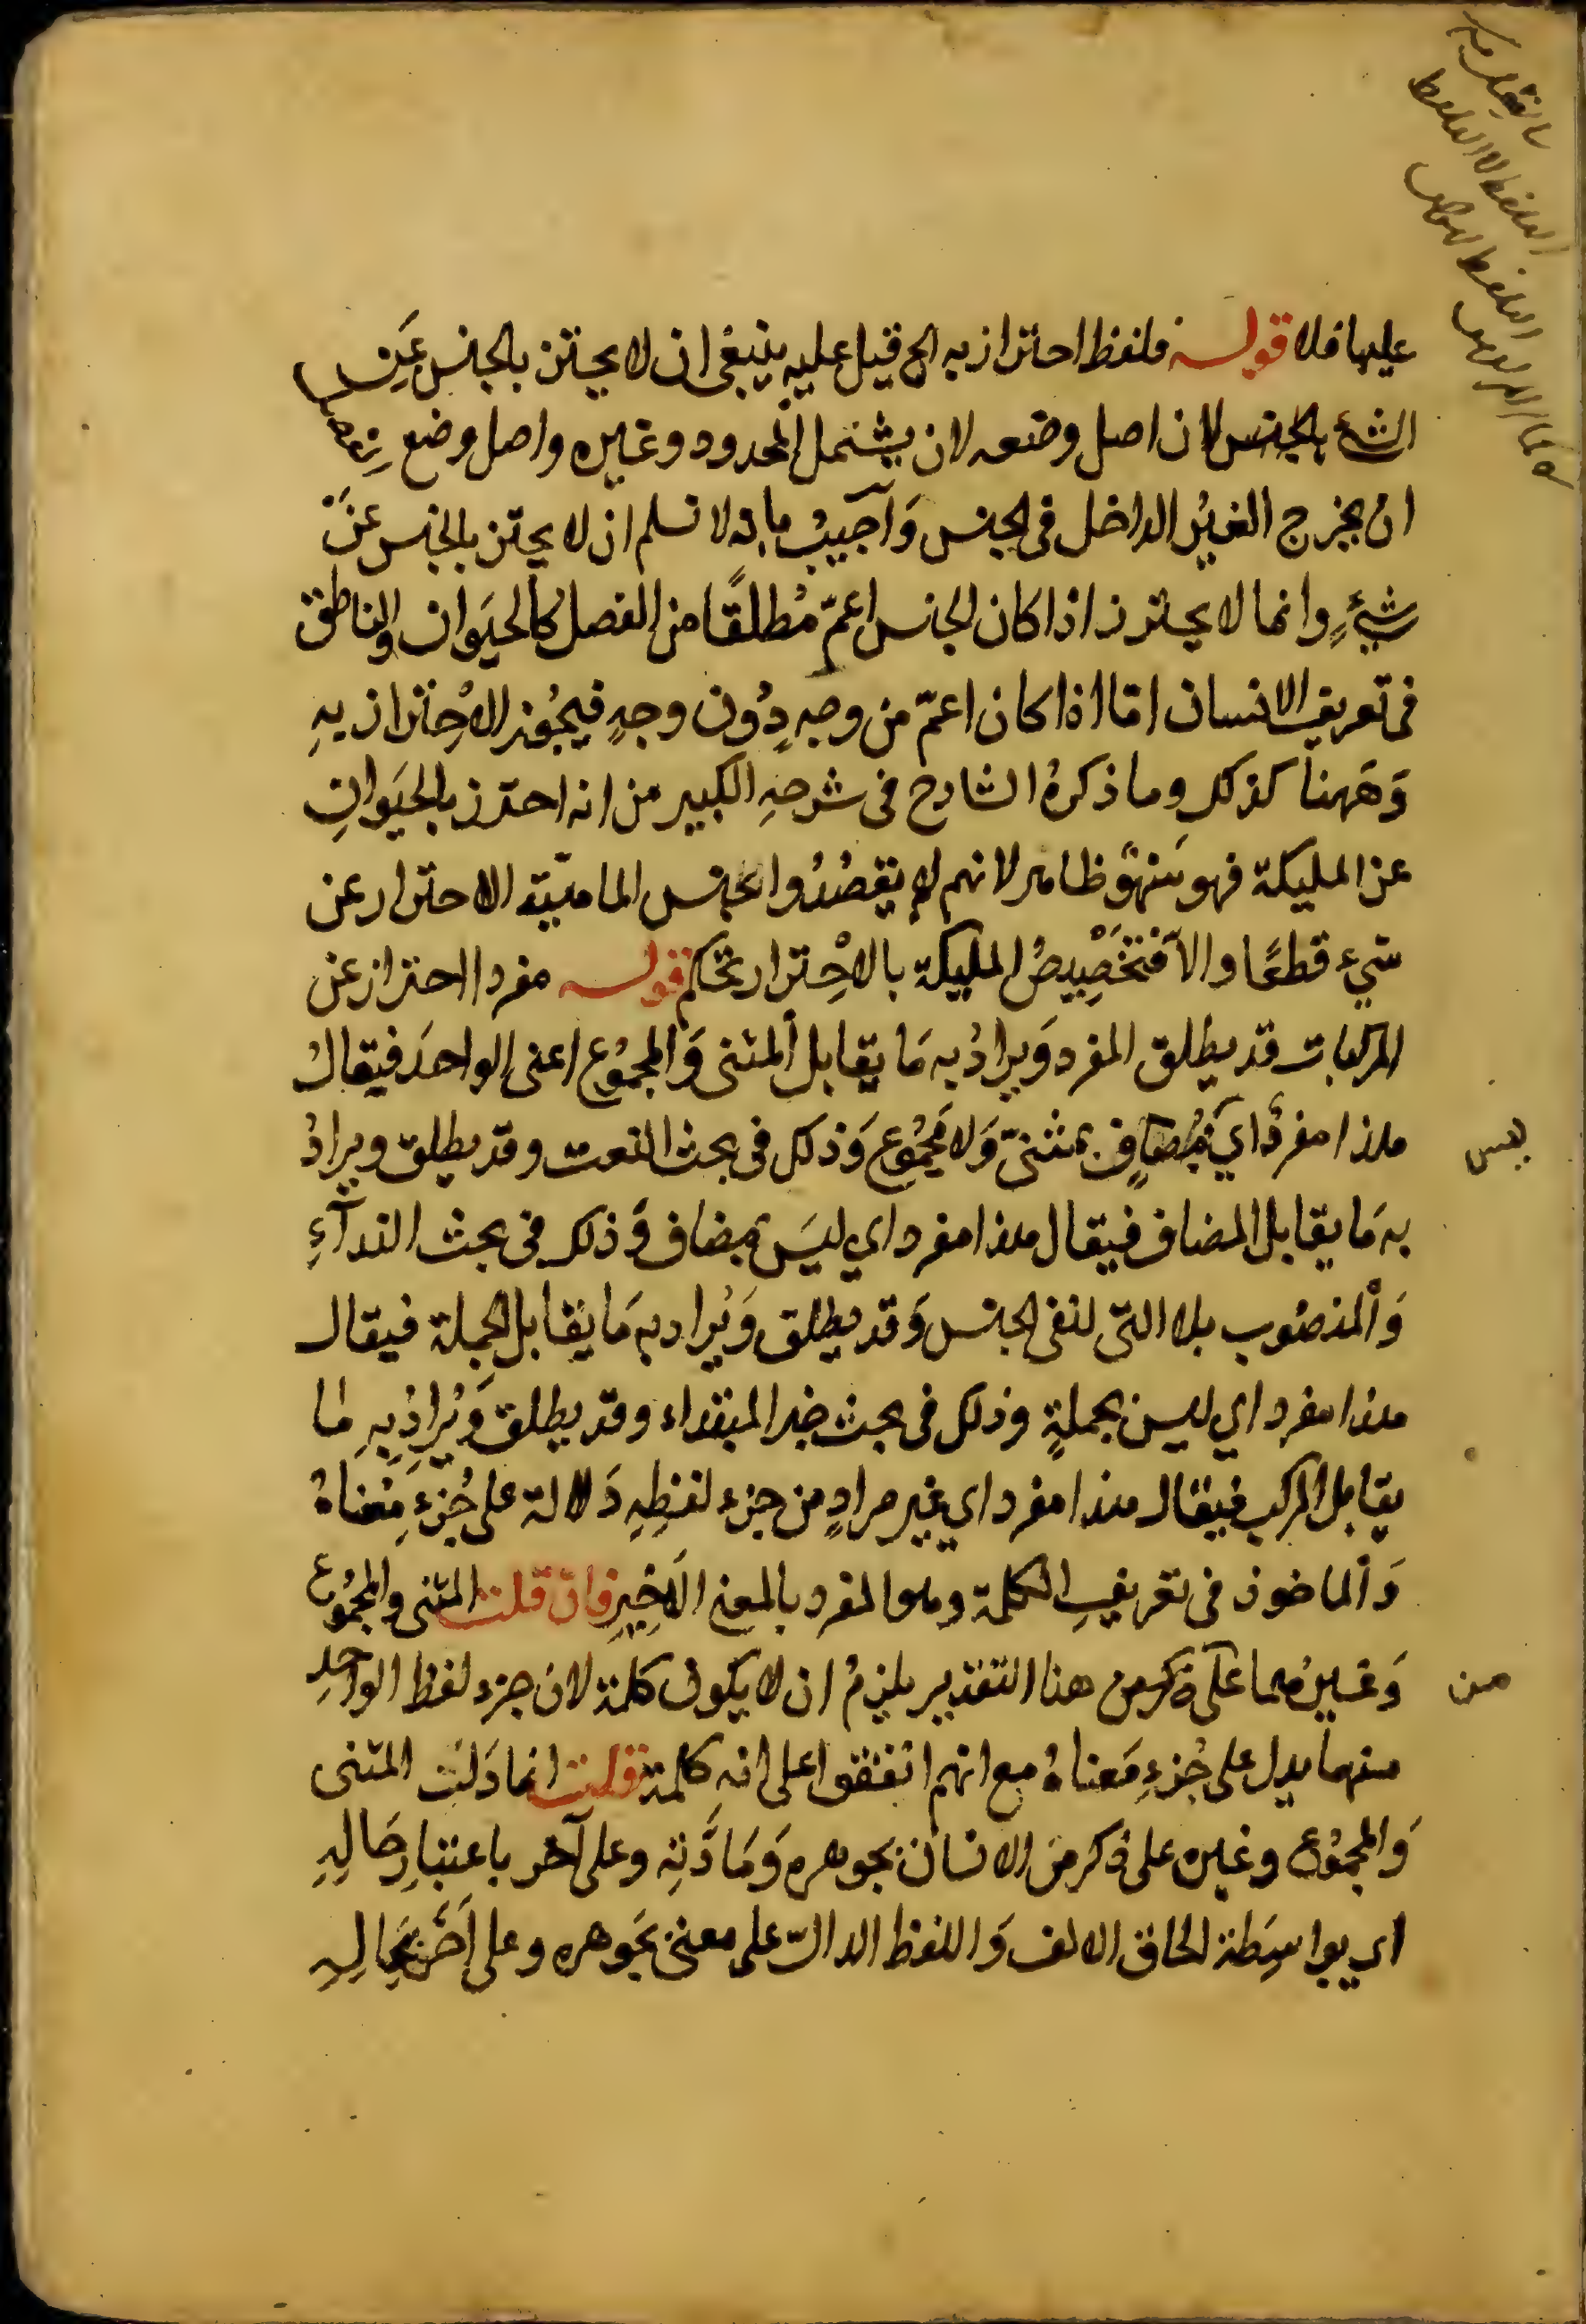 عليها فلا قوله فلفظ احتراز به الخ قيل عليه ينبغى ان لا يحترز بالجنس عن
الشئ بالجنس لان اصل وضعه لان يشتمل المحدود وغيره واصل وضع
ان يخرج الغير الداخل فى الجنس وَاجيبُ بانه لا نسلم ان لا يحترز بالجنس عن
شيْءٍ وانما لا يحترز اذا كان الجنس اعمّ مُطلقًا من الفصل كالحيَوان والناطق
فى تعريف الانسان امّا اذا كان اعمّ من وجهٍ دُون وجهٍ فيجُوز الاحِتراز بهِ
وَههنا كذلك وما ذكرهُ الشارح فى شرحهِ الكبير من انه احترز بالحيَوانِ
عن المليكة فهو سَهوٌ ظاهر لانهم لم يقصُدُوا بجنس الماهيّة الاحترار عن
شيء قطعًا والاّ فتخصِيصُ المليكة بالاحِترار تحكم قوله مفردا احتراز عن
المركبات قد يطلق المفرد وَيرادُ به مَا يقابل المثنى وَالمجمُوع اعنى الواحدَ فيقالُ
هذا مفردٌ اي بمثنىّ وَلا مجمُوع وَذلك فى بحث النعت وقد يطلق ويرادُ
به مَا يقابل المضاف فيقال هذا مفرد اي ليسَ بمضاف وَذلك فى بحث الندآءِ
وَالمنصُوب بلا التى لنفى الجنس وَقد يطلق وَيُراد به مَا يقابل الجملة فيقال
هذا مفرد اي ليس بجملةٍ وذلك فى بحث خبر المبتداء وقد يطلق وَيُرادُ بهِ ما
يقابل المركب فيقال هذا مفرد اي غير مرادٍ من جزء لفظِهِ دَلالة على جُزءِ مَعناهُ
وَالماخوذ فى تعريفِ الكلمة وهو المفرد بالمعنى الاَخِيرِ فان قلت المثنى والمجمُوع
وَغيرُهما على هذا التقدير يلزمُ ان لا يكون كلمة لان جزء لفظ الواحدِ
منهما يدل على جُزءِ مَعناهُ مع انهم اتفقوا على انه كلمة قلت انما دَلت المثنى
وَالمجمُوع وغيره على ذكر من الانسان بجوهره وَمَادَّتهِ وعلى آخر باعتبارِ حَالِهِ
اى بواسِطة الحاق الالف وَاللفظ الدالّ على معنى بجَوهره وعلى آخَر بحَالِهِ
ليس
من